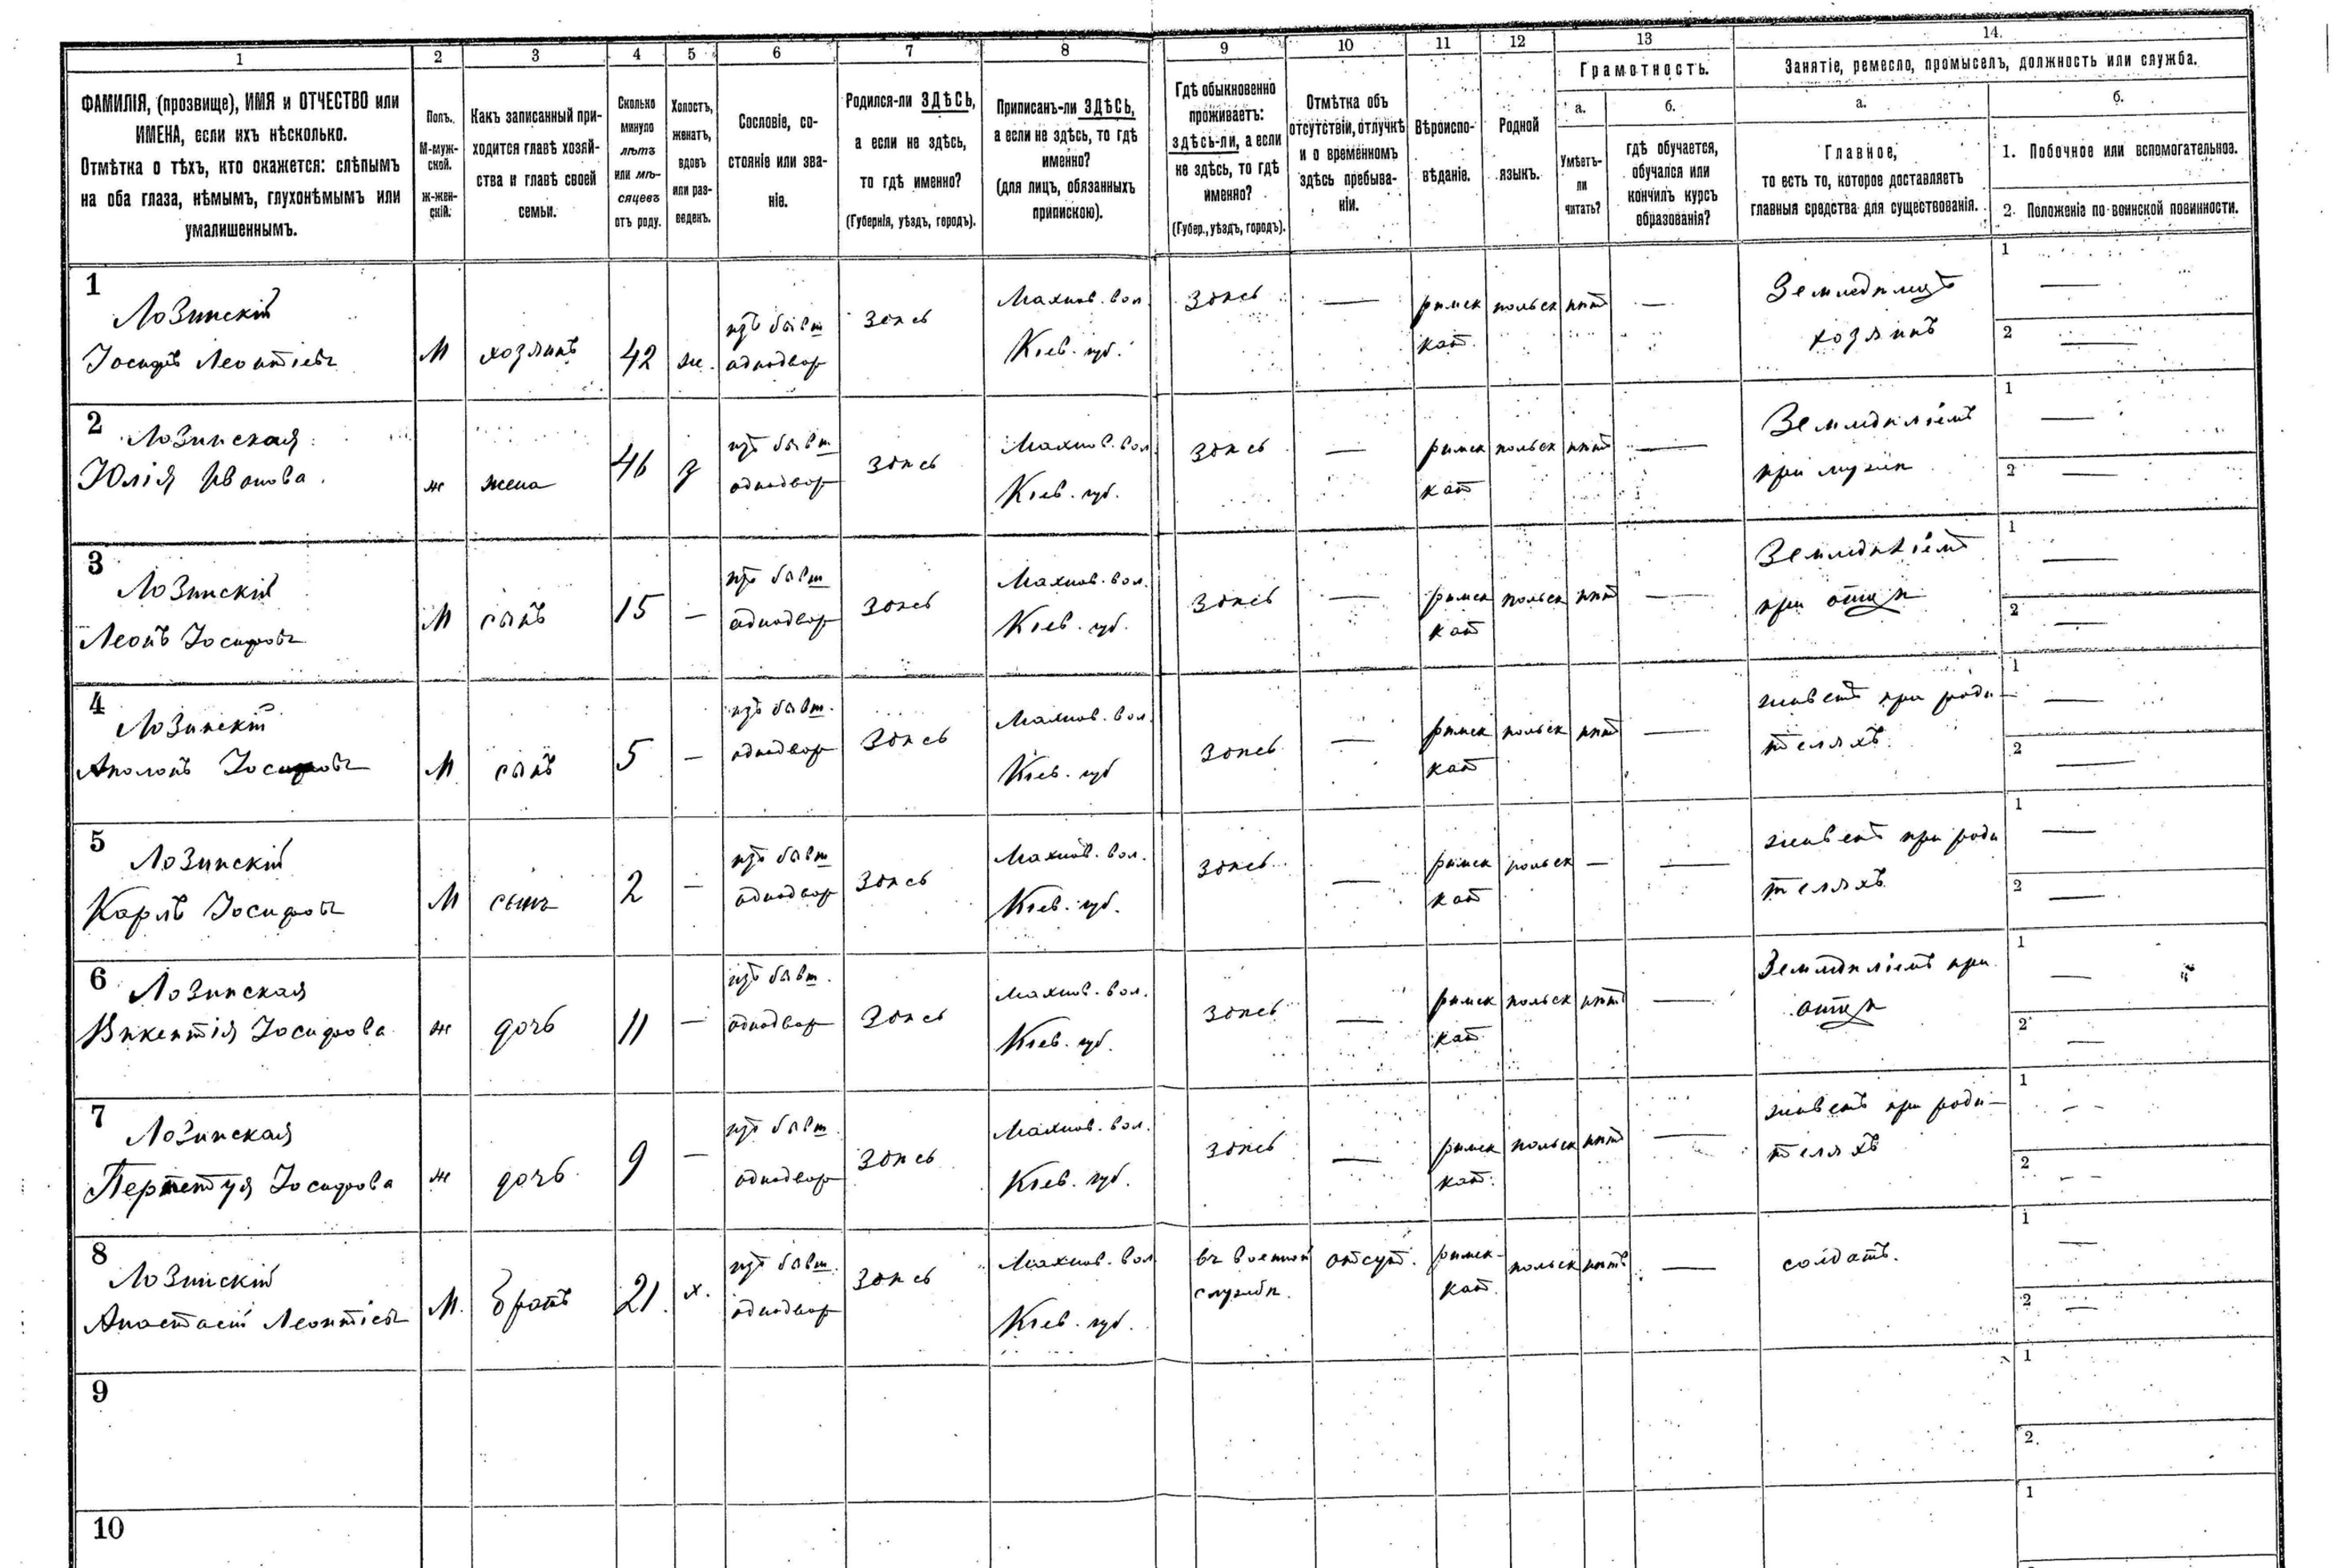 1 2 3 4 5 6 7 8 9 10 11 12 13 14.
ФАМИЛІЯ, (прозвище), ИМЯ и ОТЧЕСТВО или
ИМЕНА, если ихъ нѣсколько.
Отмѣтка о тѣхъ, кто окажется: слѣпымъ
на оба глаза, нѣмымъ, глухонѣмымъ или
умалишеннымъ.
Полъ.
М-муж-
ской.
Ж-жен-
скій.
Какъ записанный при-
ходится главѣ хозяй-
ства и главѣ своей
семьи.
Сколько
минуло
лѣтъ
или мѣ-
сяцевъ
отъ роду.
Холостъ,
женатъ,
вдовъ
или раз-
веденъ.
Сословіе, со-
стояніе или зва-
ніе.
Родился-ли ЗДѢСЬ,
а если не здѣсь,
то гдѣ именно?
(Губернія, уѣздъ, городъ).
Приписанъ-ли ЗДѢСЬ,
а если не здѣсь, то гдѣ
именно?
(для лицъ, обязанныхъ
припискою).
Гдѣ обыкновенно
проживаетъ:
здѣсь-ли, а если
не здѣсь, то гдѣ
именно?
(Губер., уѣздъ, городъ).
Отмѣтка объ
отсутствіи, отлучкѣ
и о временномъ
здѣсь пребыва-
ніи.
Вѣроиспо-
вѣданіе.
Родной
языкъ.
Грамотность.
а.
Умѣетъ-
ли
читать?
б.
гдѣ обучается,
обучался или
кончилъ курсъ
образованія?
Занятіе, ремесло, промыселъ, должность или служба.
а.
Главное,
то есть то, которое доставляетъ
главныя средства для существованія.
б.
1. Побочное или вспомогательное.
2. Положеніе по воинской повинности.
1
Лозинскій
Іосифъ Леонтіевъ
М
хозяинъ
42
ж.
изъ бывш
однодвор
здѣсь
Махнов. вол.
Кіев. губ.
здѣсь
—
римск
кат.
польск
нѣтъ
—
Земледѣлецъ
хозяинъ
1 —
2 —
2
Лозинская
Юлія Иванова.
ж
жена
46
з
изъ бывш
однодвор
здѣсь
Махнов. вол.
Кіев. губ.
здѣсь
—
римск
кат
польск
нѣтъ
—
Земледѣліемъ
при мужѣ
1 —
2 —
3
Лозинскій
Леонъ Іосифовъ
М
сынъ
15
—
изъ бывш
однодвор
здѣсь
Махнов. вол.
Кіев. губ.
здѣсь
—
римск
кат
польск
нѣтъ
—
Земледѣліемъ
при отцѣ
1 —
2 —
4
Лозинскій
Аполонъ Іосифовъ
М
сынъ
5
—
изъ бывш.
однодвор
здѣсь
Махнов. вол.
Кіев. губ
здѣсь
—
римск
кат
польск
нѣтъ
—
живетъ при роди-
теляхъ.
1 —
2 —
5
Лозинскій
Карлъ Іосифовъ
М
сынъ
2
—
изъ бывш
однодвор
здѣсь
Махнов. вол.
Кіев. губ.
здѣсь
—
римск
кат
польск
—
—
живетъ при роди
теляхъ
1 —
2 —
6
Лозинская
Викентія Іосифова
ж
дочь
11
—
изъ бывш.
однодвор
здѣсь
Махнов. вол.
Кіев. губ.
здѣсь
—
римск
кат
польск
нѣтъ
—
Земледѣліемъ при
отцѣ
1 —
2 —
7
Лозинская
Перпетуя Іосифова
ж
дочь
9
—
изъ бывш.
однодвор
здѣсь
Махнов. вол.
Кіев. губ.
здѣсь
—
римск
кат.
польск
нѣтъ
—
живетъ при роди-
теляхъ
1 —
2 —
8
Лозинскій
Анастасій Леонтіевъ
М.
братъ
21.
х.
изъ бывш.
однодвор
здѣсь
Махнов. вол
Кіев. губ.
въ военной
службѣ.
отсут.
римск-
кат.
польск
нѣтъ
—
солдатъ.
1 —
2 —
9
1
2.
10
1